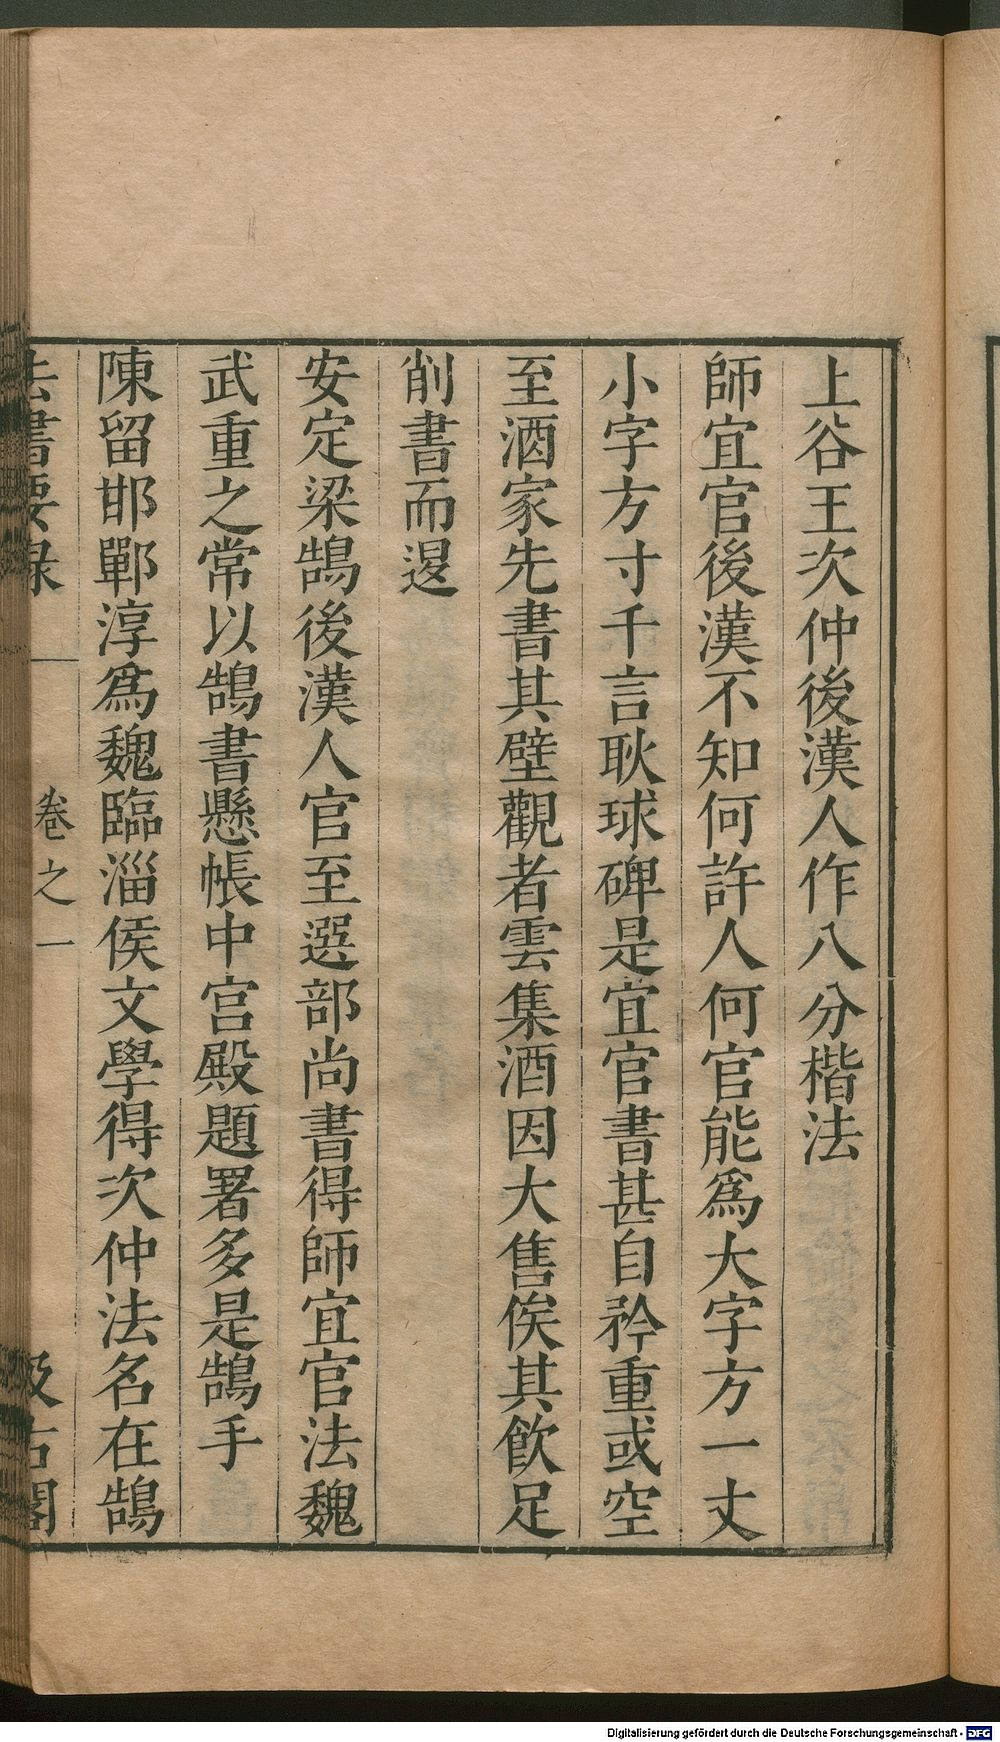 上谷王次仲後漢人作八分楷法
師宜官後漢不知何許人何官能爲大字方一丈
小字方寸千言耿球碑是宜官書甚自矜重或空
至酒家先書其壁觀者雲集酒因大售俟其飲足
削書而退
安定梁鵠後漢人官至選部尚書得師宜官法魏
武重之常以鵠書懸帳中宮殿題署多是鵠手
陳留邯鄲淳爲魏臨淄侯文學得次仲法名在鵠
法書要録 卷之一 汲古閣
Digitalisierung gefördert durch die Deutsche Forschungsgemeinschaft - DFG